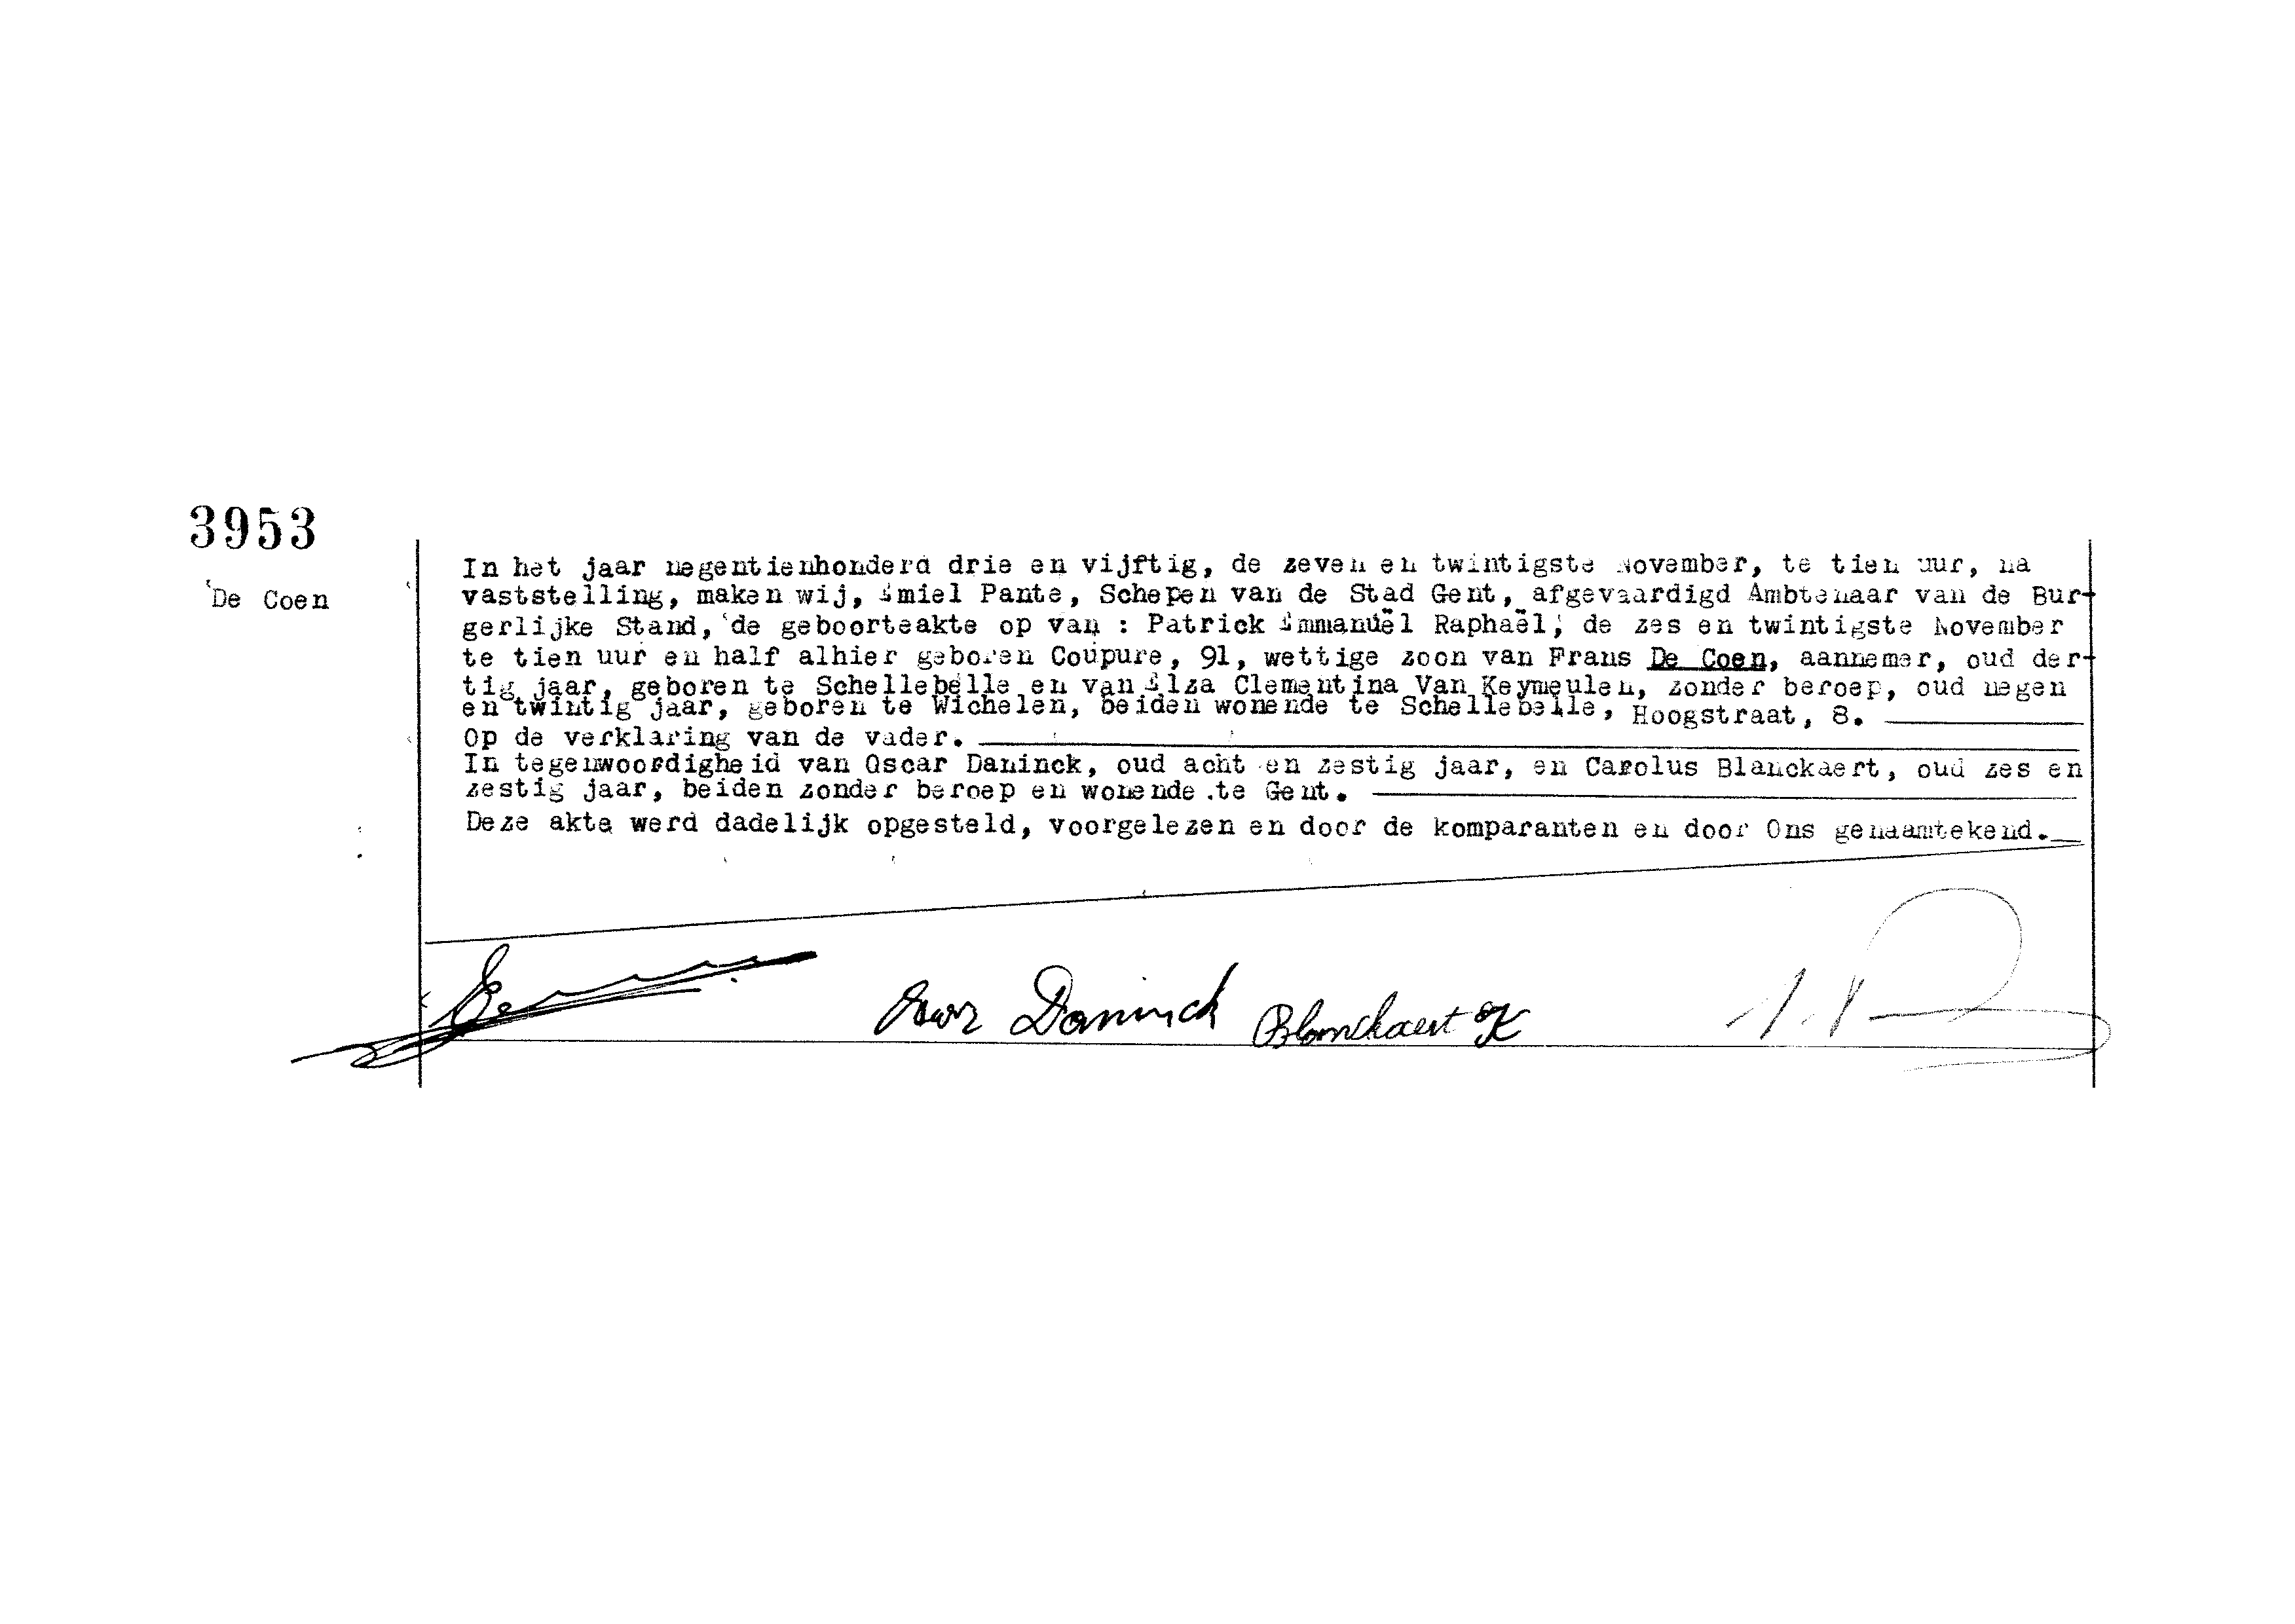 3953
De Coen
In het jaar negentienhonderd drie en vijftig, de zeven en twintigste November, te tien uur, na
vaststelling, maken wij, Emiel Pante, Schepen van de Stad Gent, afgevaardigd Ambtenaar van de Bur-
gerlijke Stand, de geboorteakte op van : Patrick Emmanuël Raphaël, de zes en twintigste November
te tien uur en half alhier geboren Coupure, 91, wettige zoon van Frans De Coen, aannemer, oud der-
tig jaar, geboren te Schellebelle en van Elza Clementina Van Keymeulen, zonder beroep, oud negen
en twintig jaar, geboren te Wichelen, beiden wonende te Schellebelle, Hoogstraat, 8.
Op de verklaring van de vader.
In tegenwoordigheid van Oscar Daninck, oud acht en zestig jaar, en Carolus Blanckaert, oud zes en
zestig jaar, beiden zonder beroep en wonende te Gent.
Deze akte werd dadelijk opgesteld, voorgelezen en door de komparanten en door Ons genaamtekend.
Daninck Blanckaert K